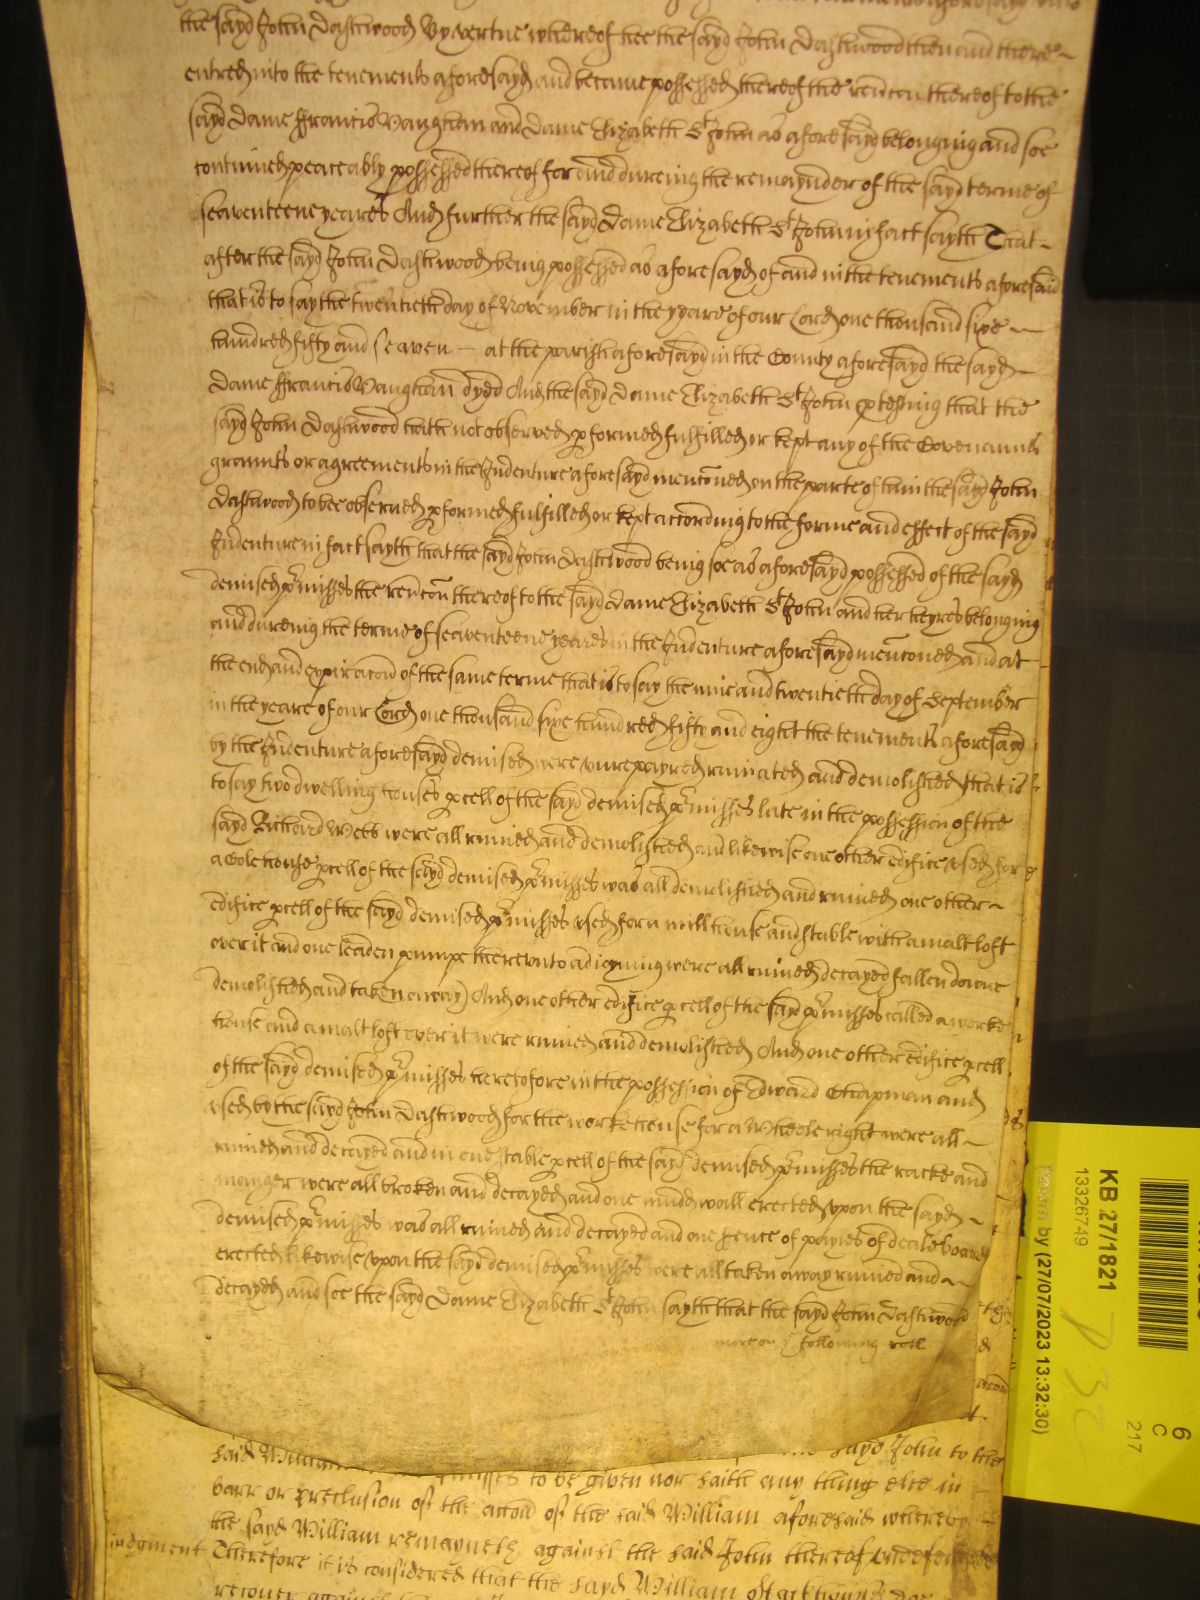 the sayd John Dashwood By vertue whereof hee the sayd John Dashwood then and there
entred into the tenements aforesayd and became possessed thereof the revercon thereof to the
sayd Dame ffrancis Vaughan and Dame Elizabeth St John as aforesayd belonging and soe
continued peaceably possessed thereof for and dureing the remaynder of the sayd terme of
seaventeene yeares And further the sayd Dame Elizabeth St John in fact sayth That
after the sayd John Dashwood being possessed as aforesayd of and in the tenements aforesaid
that is to say the twentieth day of November in the yeare of our Lord one thousand sixe
hundred fifty and seaven at the parish aforesayd in the County aforesayd the sayd
Dame ffrancis Vaughan dyed And the sayd Dame Elizabeth St John ptesting that the
sayd John Dashwood hath not observed pformed fulfilled or kept any of the Covenants
graunts or agreements in the Indenture aforesayd menconed on the parte of him the sayd John
Dashwood to bee observed pformed fulfilled or kept according to the forme and effect of the sayd
Indenture in fact sayth that the sayd John Dashwood being soe as aforesayd possessed of the sayd
demised pmisses the revercon thereof to the sayd Dame Elizabeth St John and her heyres belonging
and dureing the terme of seaventeene yeares in the Indenture aforesayd menconed and at
the end and expiracon of the same terme that is to say the nine and twentieth day of September
in the yeare of our Lord one thousand sixe hundred fifty and eight the tenements aforesayd
by the Indenture aforesayd demised were unrepayred ruinated and demolished that is
to say two dwelling houses pcell of the sayd demised pmisses late in the possession of the
sayd Richard Webb were all ruined and demolished and likewise one other edifice used for
a Cole house pcell of the sayd demised pmisses was all demolished and ruined one other
edifice pcell of the sayd demised pmisses used for a mill house and stable with a malt loft
over it and one leaden pumpe thereunto adioyning were all ruined decayed fallen downe
demolished and taken away And one other edifice pcell of the sayd pmisses called a worke
house and a malt loft over it were ruined and demolished And one other edifice pcell
of the sayd demised pmisses heretofore in the possession of Edward Chapman and
used by the sayd John Dashwood for the workehouse for a Wheele right were all
ruined and decayed and in one stable pcell of the sayd demised pmisses the racke and
manger were all broken and decayed and one mudd wall erected upon the sayd
demised pmisses was all ruined and decayed and one fence of payles of deale board
erected likewise upon the sayd demised pmisses were all taken away ruined and
decayed and soe the sayd Dame Elizabeth St John sayth that the sayd John Dashwood
more on ye following roll
sayd John to the
said William pmisses to be given nor saith any thing else in
barr or preclusion of the accon of the said William aforesaid whereby
the sayd William remayneth against the said John thereof undefended
judgment Therefore it is considered that the sayd William
recover against
KB 27/1821
13326749
Return by (27/07/2023 13:32:30)
6
C
217